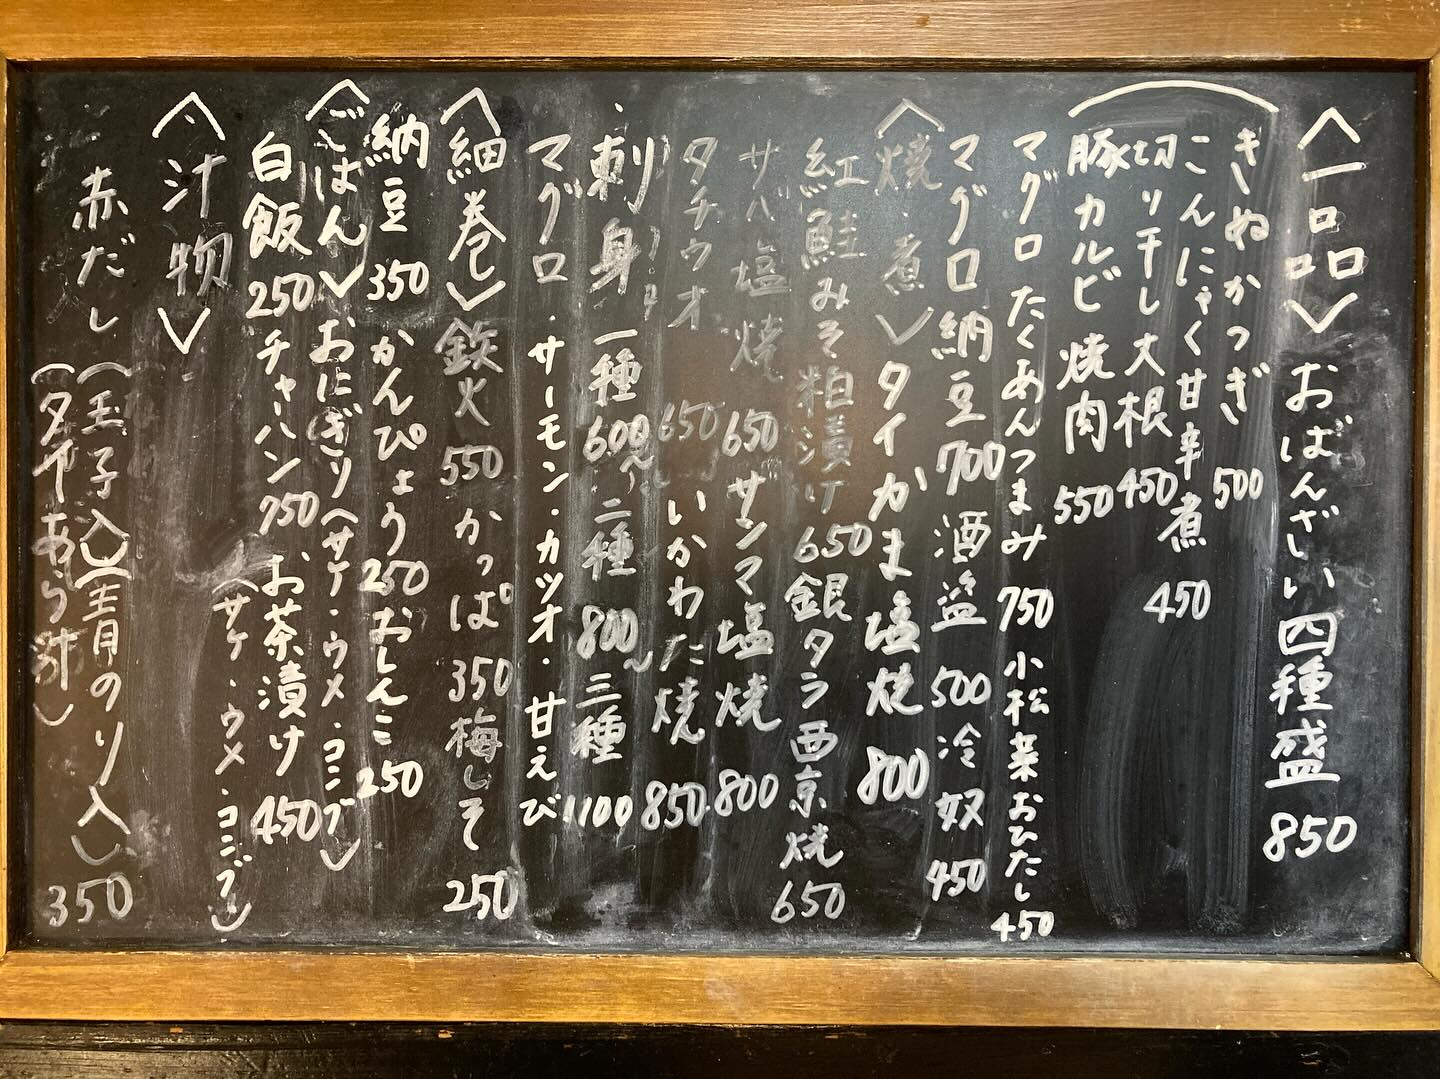 〈一品〉 おばんざい四種盛 850
きぬかつぎ 500
こんにゃく甘辛煮 450
切り干し大根 450
豚カルビ焼肉 550
マグロたくあんつまみ 750 小松菜おひたし 450
マグロ納豆 700 酒盗 500 冷奴 450
〈焼・煮〉 タイかま塩焼 800
紅鮭みそ粕漬け 650 銀タラ西京焼 650
サバ塩焼 650 サンマ塩焼 800
タチウオ 650 いかわた焼 850
刺身 一種 600〜 二種 800〜 三種 1100
マグロ・サーモン・カツオ・甘えび
〈細巻〉 鉄火 550 かっぱ 350 梅しそ 250
納豆 350 かんぴょう 250 おしんこ 250
〈ごはん〉 おにぎり〈サケ・ウメ・コンブ〉
白飯 250 チャーハン 750 お茶漬け 450
〈サケ・ウメ・コンブ〉
〈汁物〉
赤だし (玉子入)(青のり入) 350
(タイあら汁)